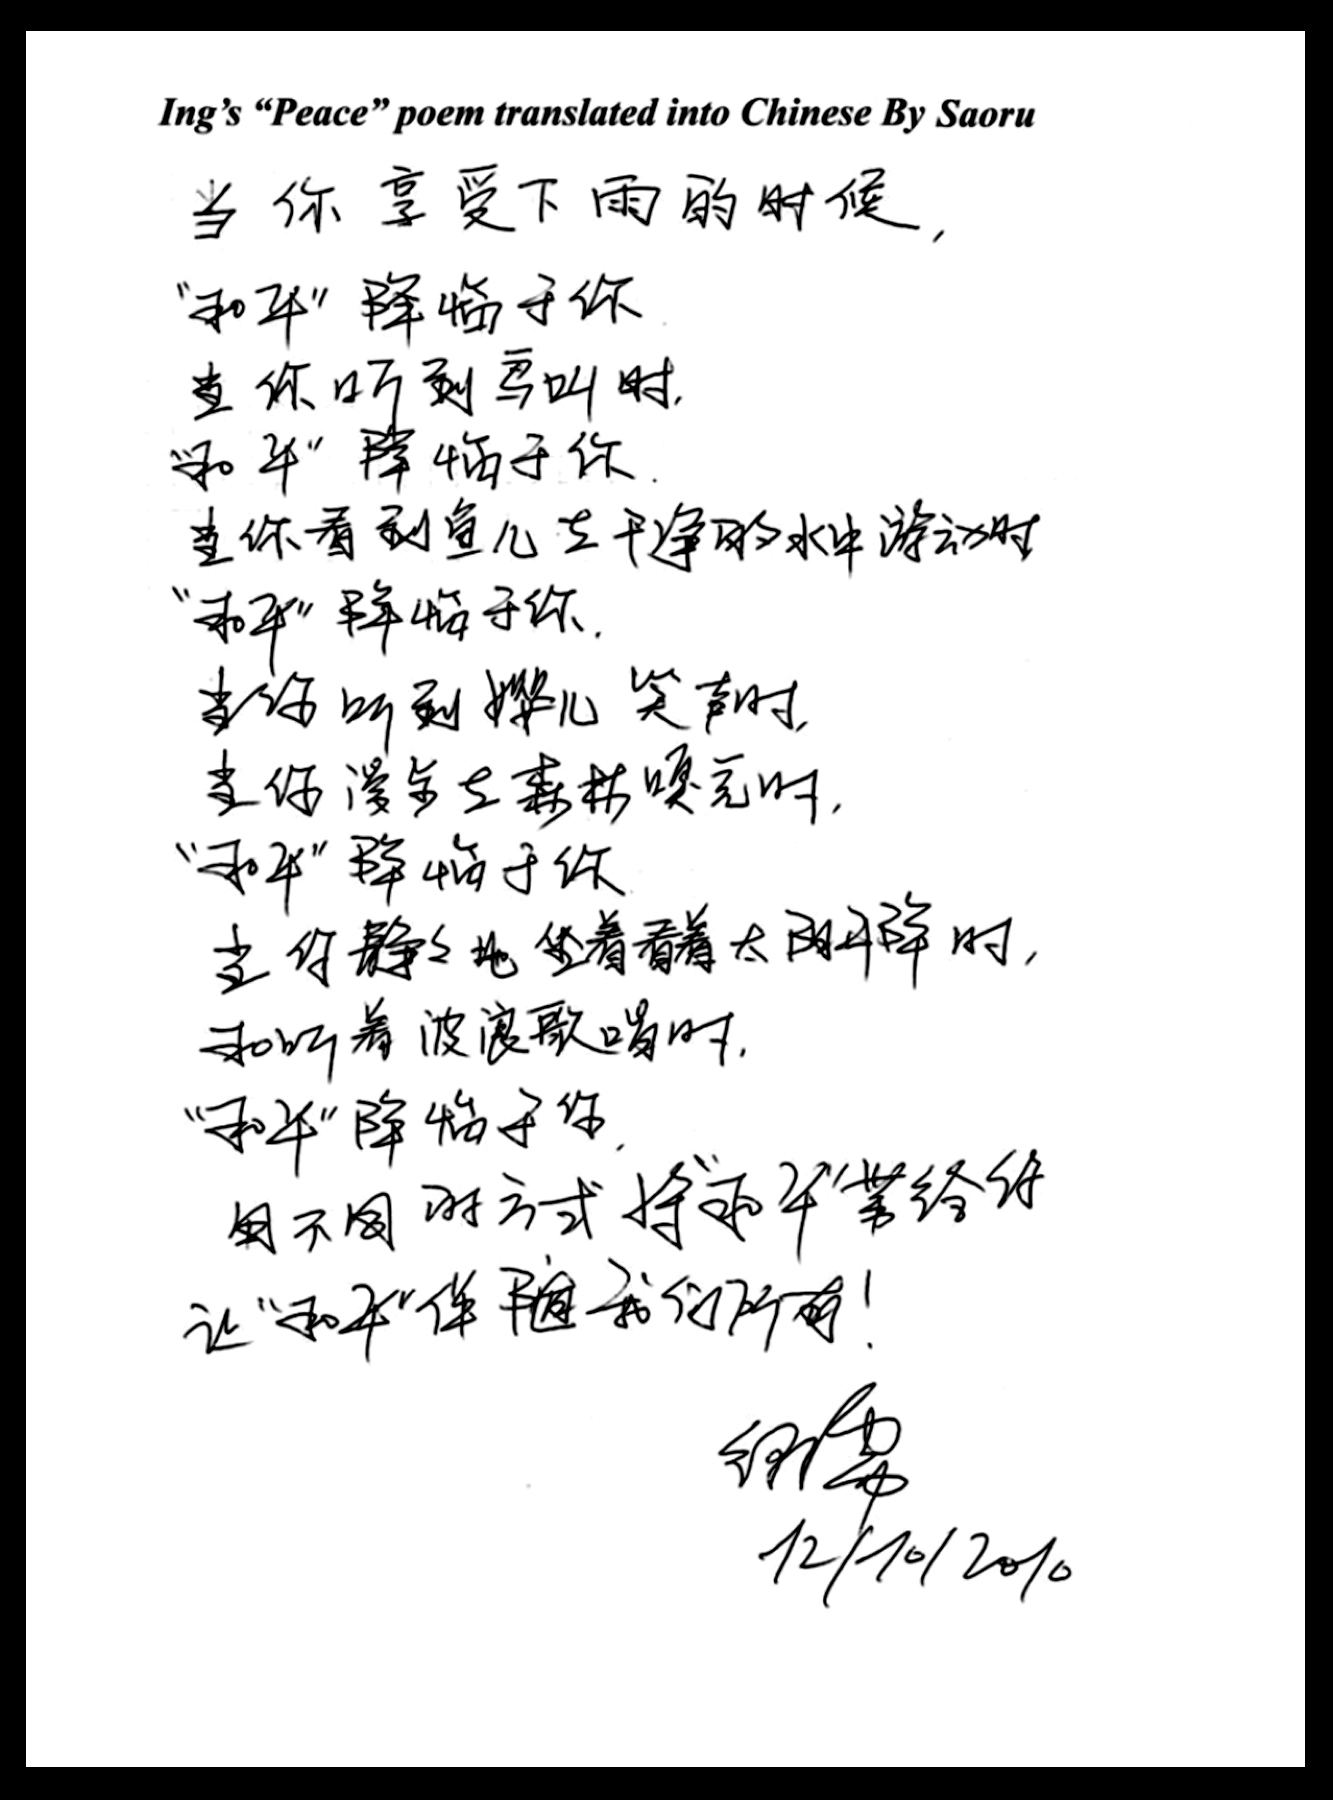 Ing's “Peace” poem translated into Chinese By Saoru
当你享受下雨的时候,
“和平”降临于你
当你听到鸟叫时.
“和平”降临于你.
当你看到鱼儿在干净的水中游动时
“和平”降临于你.
当你听到婴儿笑声时,
当你漫步在森林嗅花时,
“和平”降临于你
当你静々地坐着看着太阳下降时,
和听着波浪歌唱时.
“和平”降临于你.
用不同的方式将“和平”带给你
让“和平”伴随我们所有!
12/10/2010